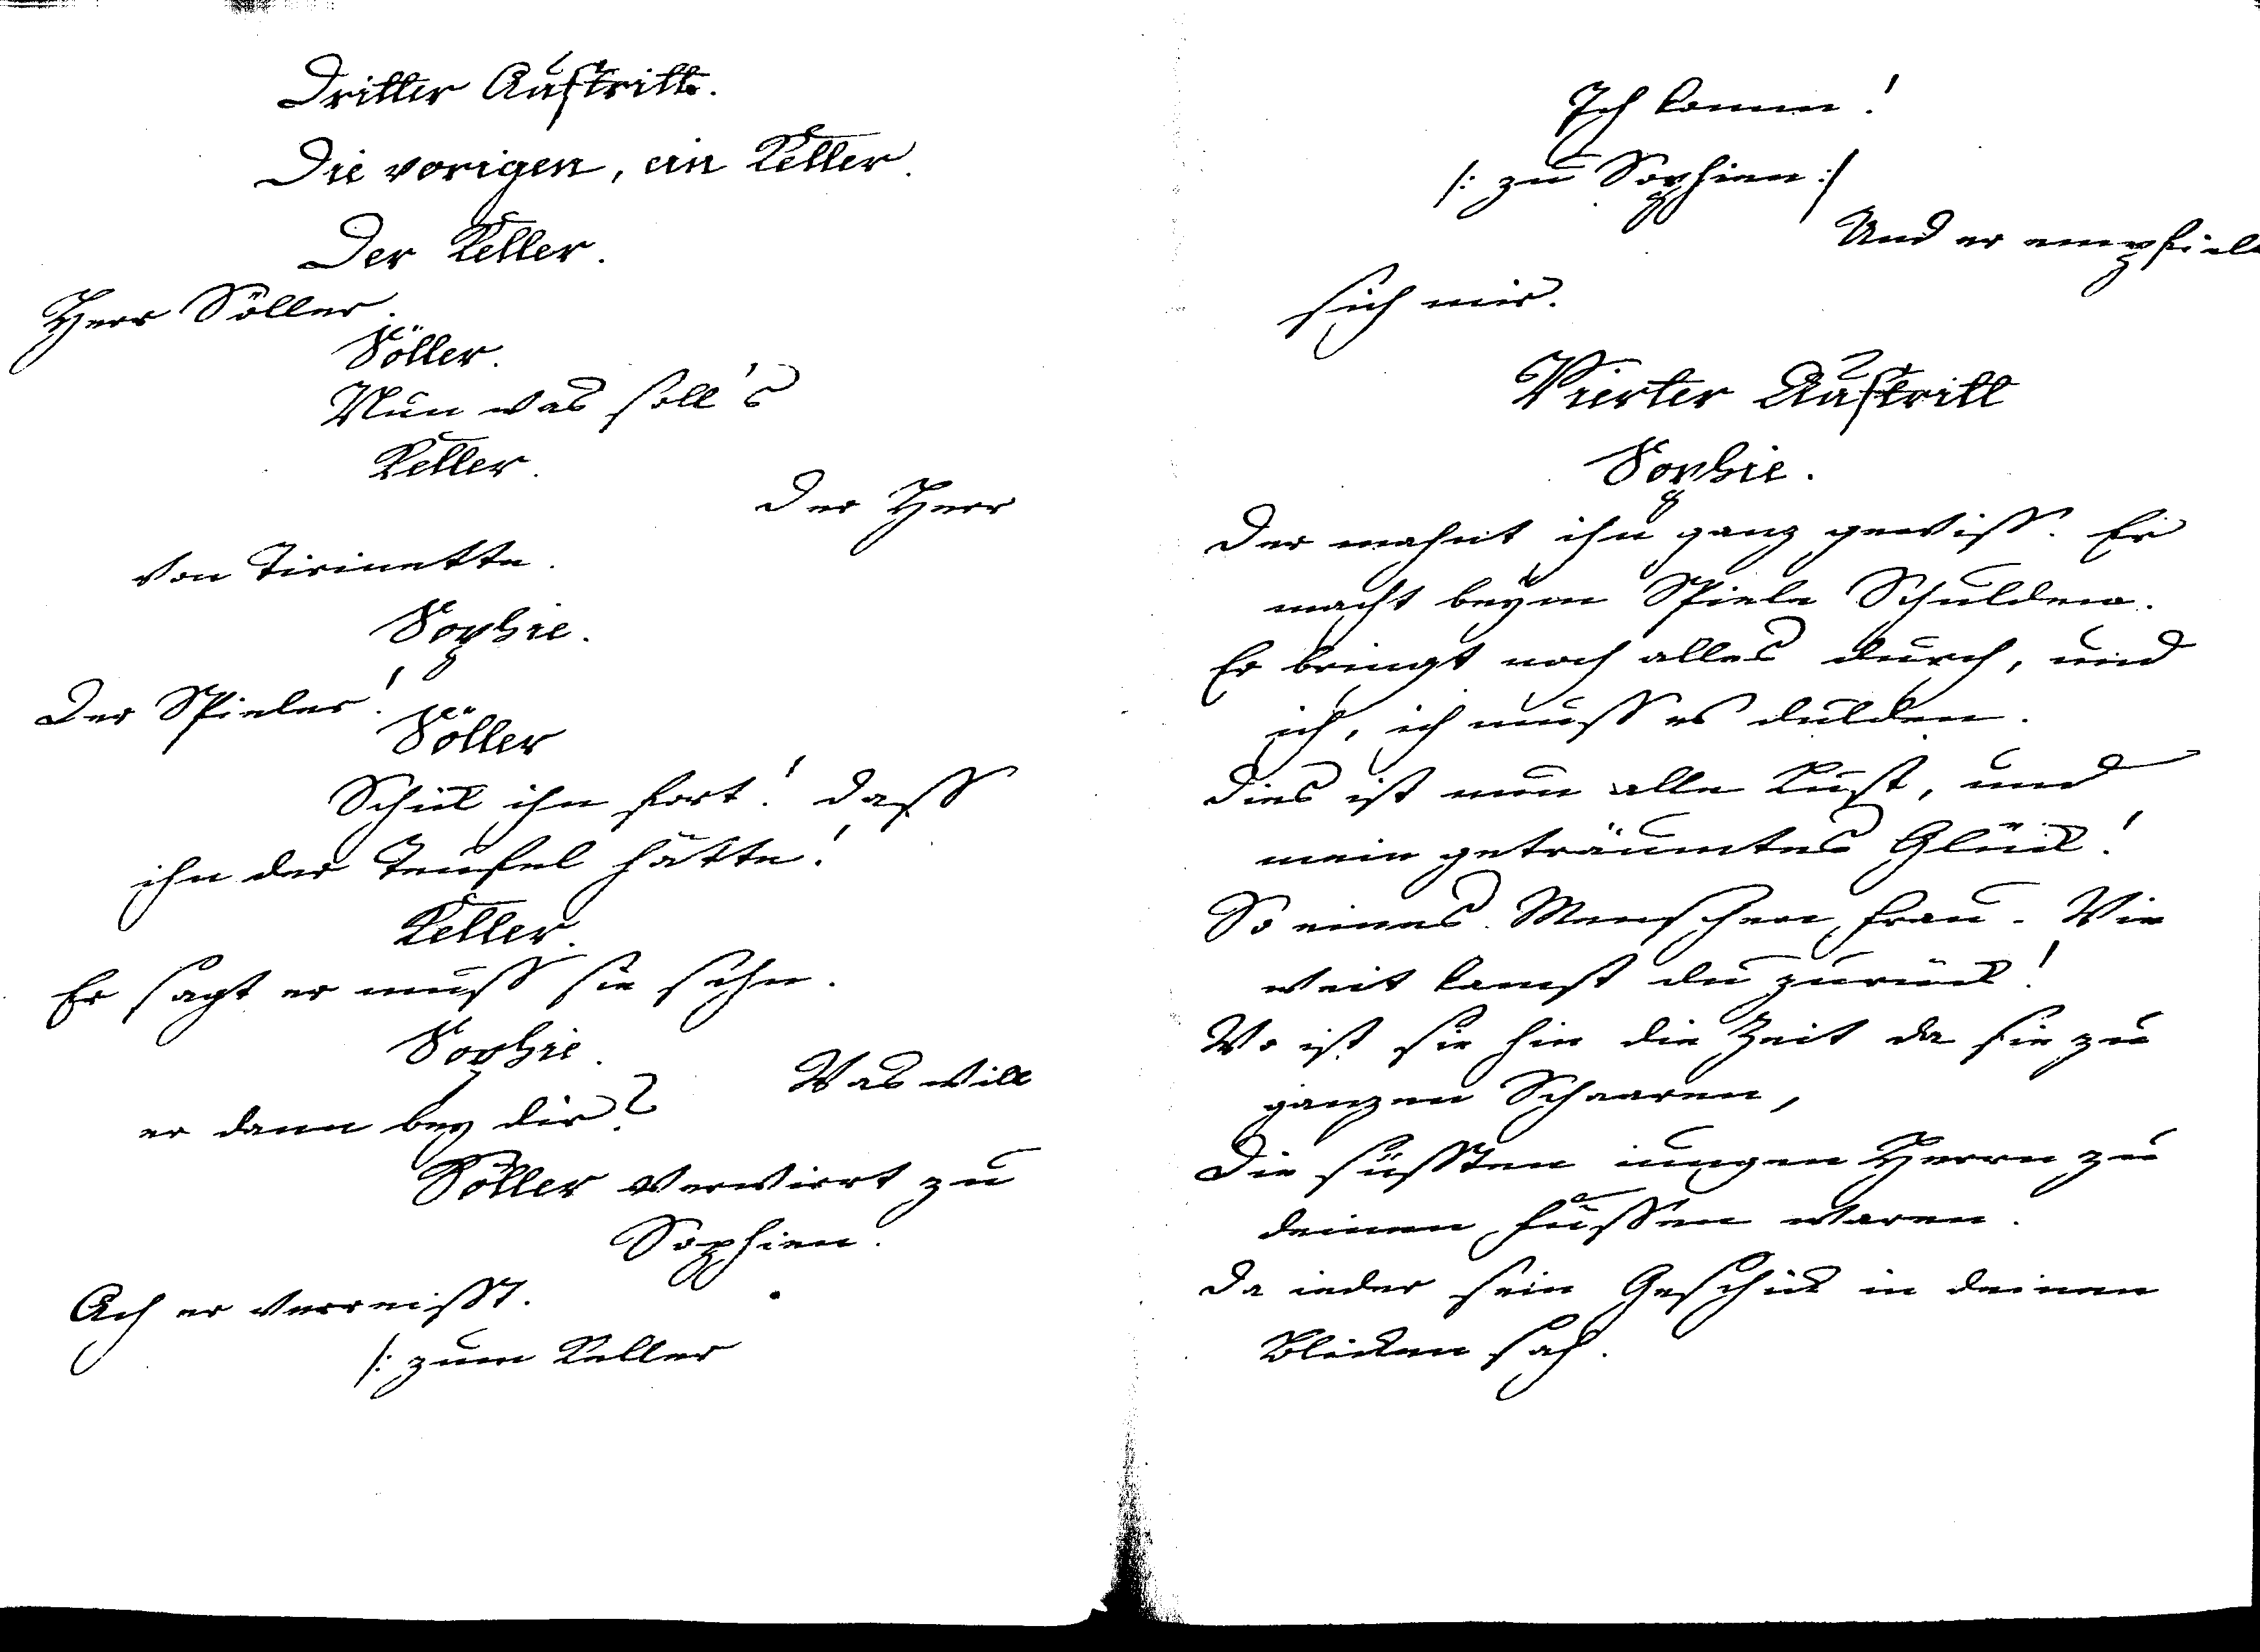 Dritter Auftritt.
Die vorigen, ein Keller.
Der Keller.
Herr Söller.
Söller.
Nun was soll's
Keller.
Der Herr
von Tirinette.
Sophie.
Der Spieler!
Söller
Schick ihn fort! dass
ihn der Teufel hätte!
Keller.
Er sagt er muss sie sehn.
Sophie.
Was will
er dann bey dir?
Söller verwirrt zu
Sophien.
Ach er verreisst.
/: zum Keller
Ich komm!
/: zu Sophien :/
Und er empfielt
sich mir.
Vierter Auftritt
Sophie.
Der mahnt ihn ganz gewiss. Er
macht beym Spiele Schulden.
Er bringt noch alles durch, und
ich, ich muss es dulden.
Dies ist nun alle Lust, und
mein geträumtes Glück!
So eines Menschen Frau. Wie
weit kamst du zurück!
Wo ist sie hin die Zeit da sie zu
ganzen Schaaren,
Die süssten iungen Herrn zu
deinen Füssen waren.
Da ieder sein Geschick in deinen
Blicken sah.